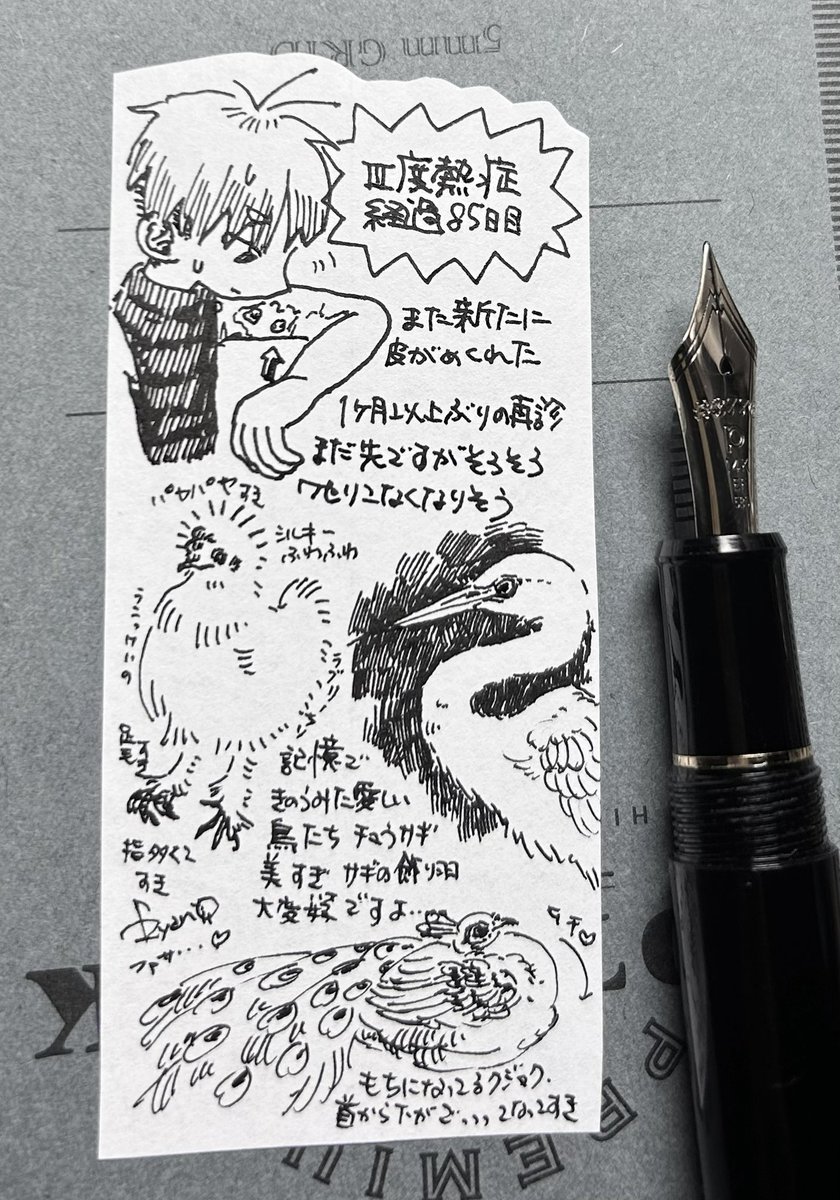 5mm GRID
Ⅲ度熱症
経過85日目
また新たに
皮がめくれた
1ヶ月以上ぶりの再診
まだ先ですがそろそろ
ワセリンなくなりそう
パヤパヤすき
シルキー
ふわふわ
足毛すき
記憶で
きのうみた愛しい
鳥たち チュウサギ
美すぎ サギの飾り羽
大変好きですよ…
指多くて
すき
ファサ…♡
もちになってるクジャク.
首から下が
PREMIUM